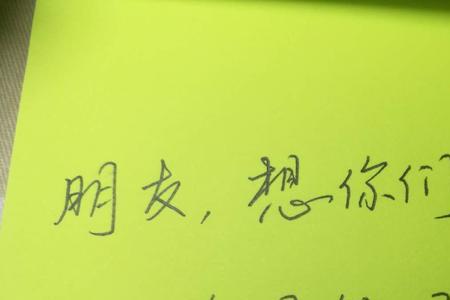 朋友,想你们